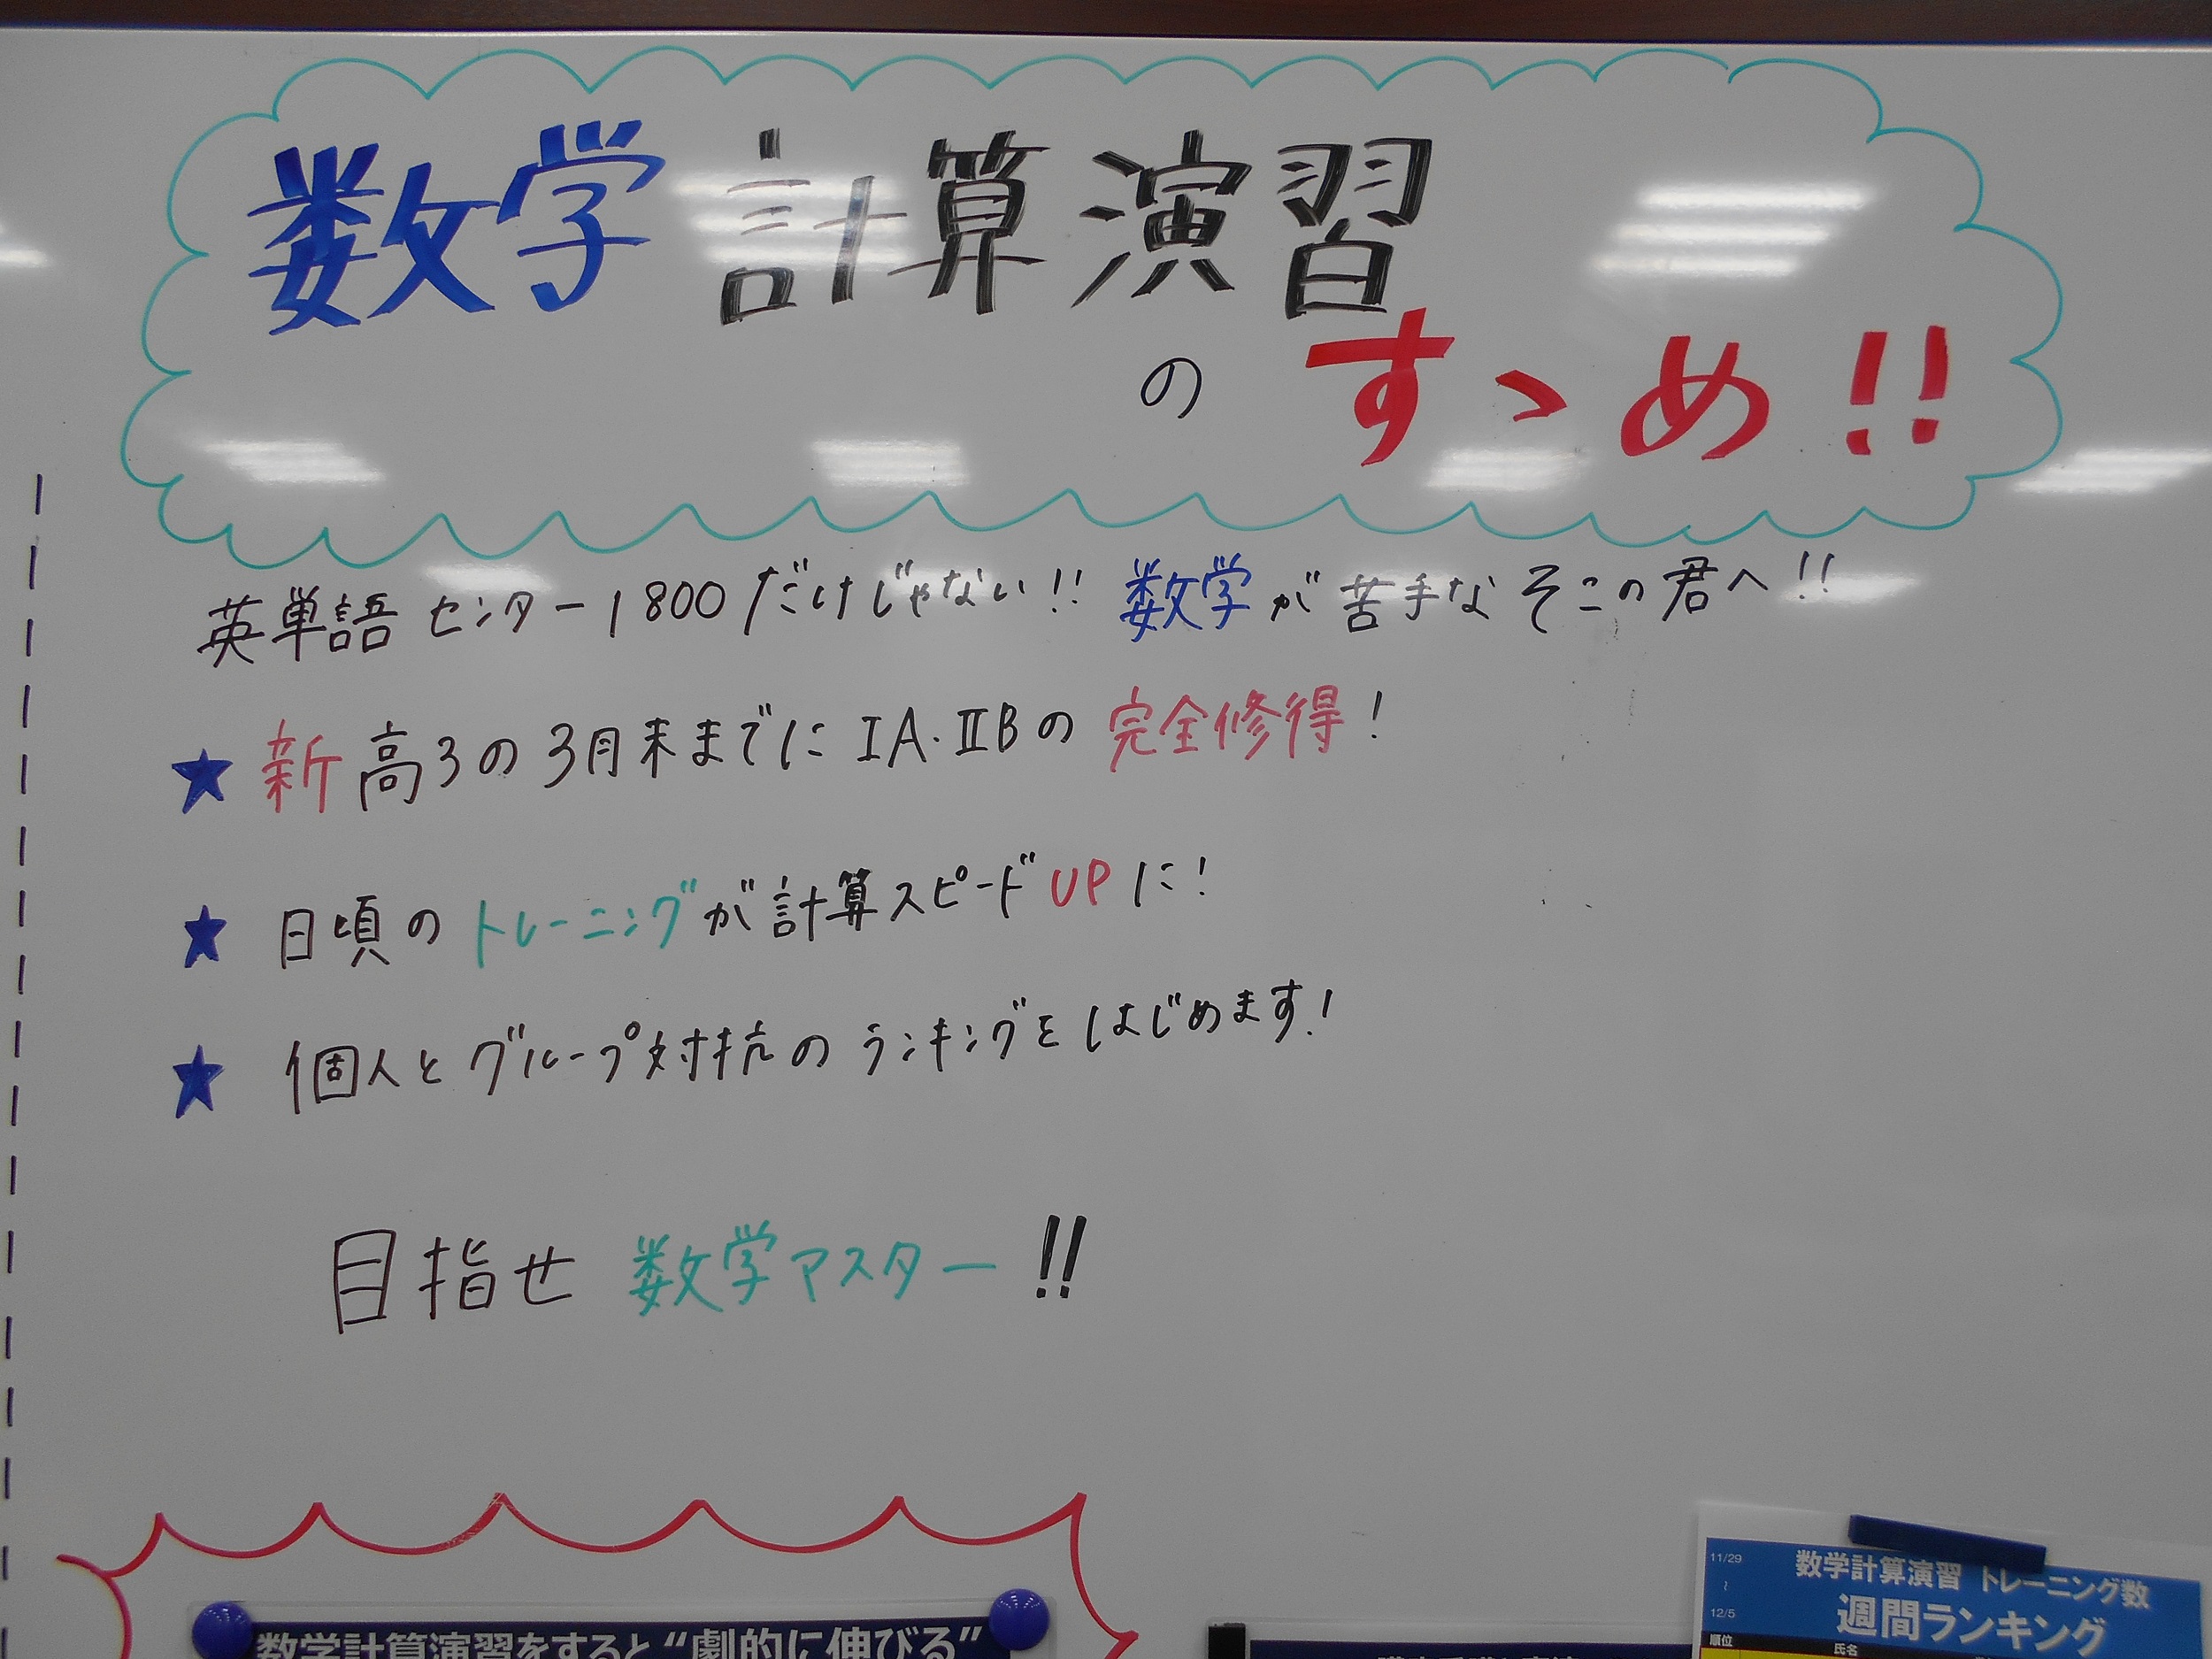 数学計算演習
のすゝめ!!
英単語センター1800だけじゃない!! 数学が苦手なそこの君へ!!
★ 新高3の3月末までにⅠA・ⅡBの完全修得!
★ 日頃のトレーニングが計算スピードUPに!
★ 個人とグループ対抗のランキングをはじめます!
目指せ 数学マスター!!
数学計算演習をすると“劇的に伸びる”
11/29
~
12/5
数学計算演習 トレーニング数
週間ランキング
順位 氏名